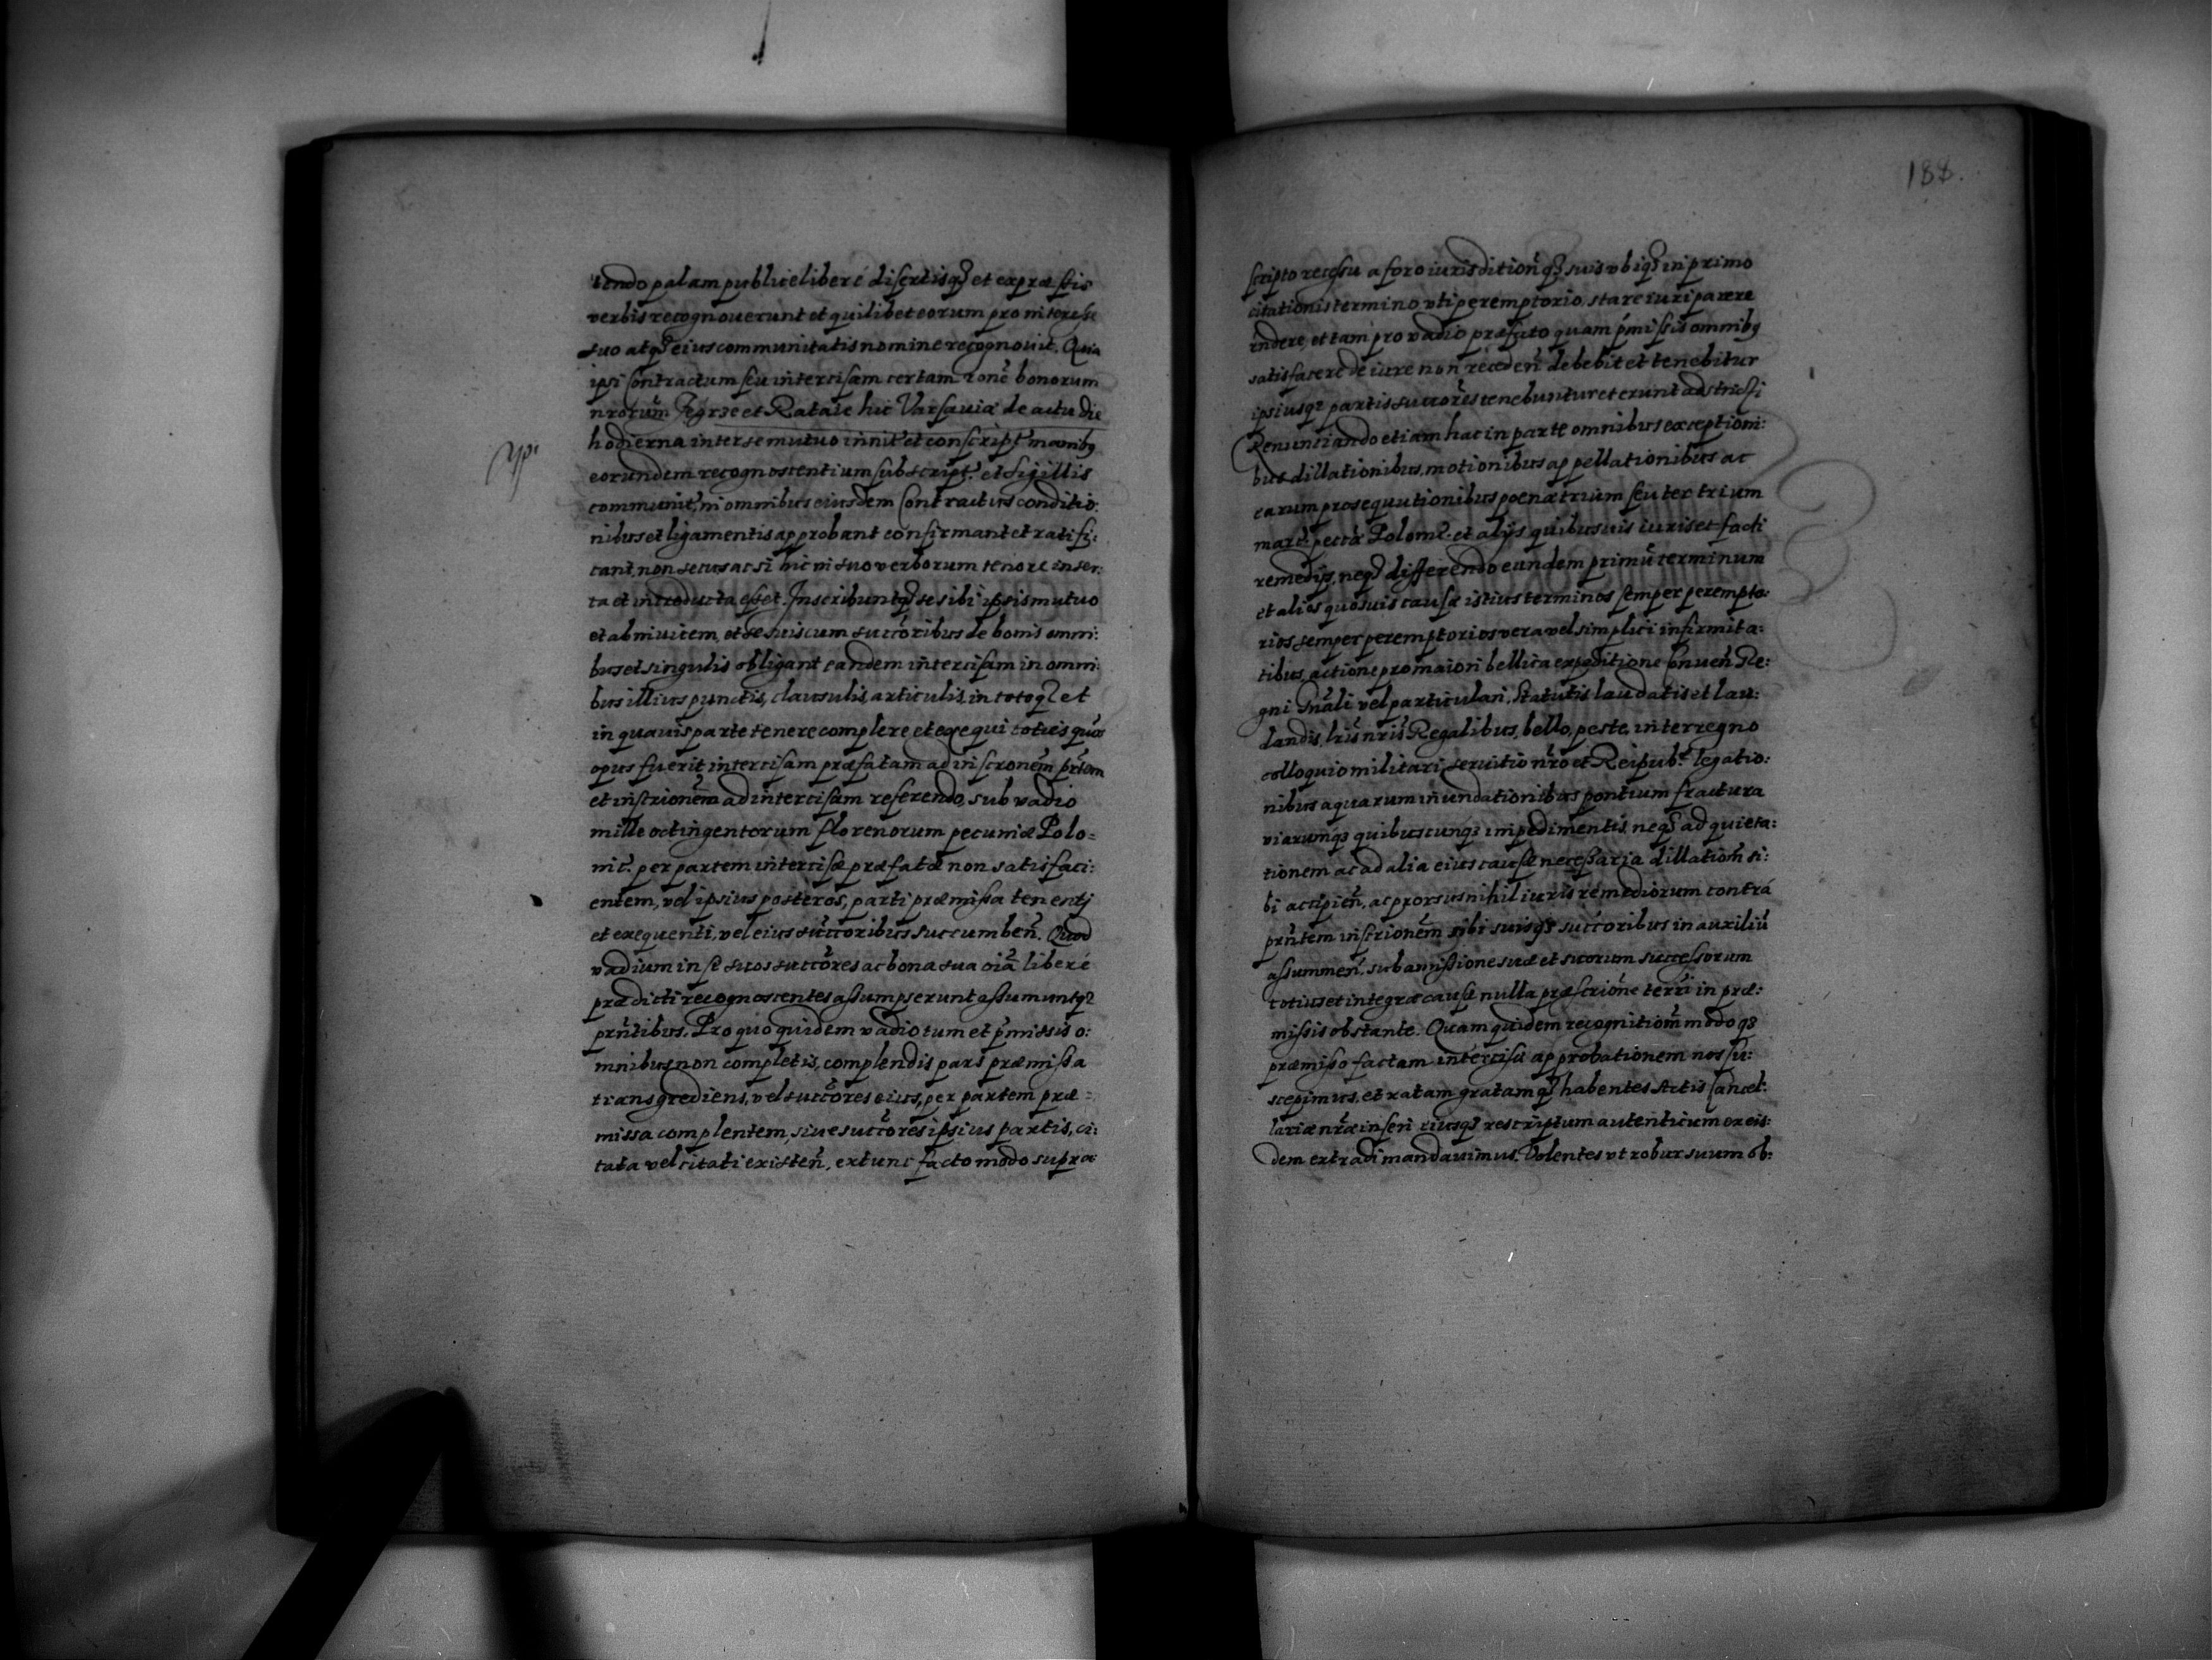 tendo palam publice liberé disertisqȝ et expræssis
verbis recognouerunt et quilibet eorum pro interesse
suo atqȝ eius communitatis nomine recognouit. Quia
ipsi Contractum seu intercisam certam rōne bonorum
nrorum̃ et Rataie hic Varsauiæ de actu die
hodierna inter se mutuo innit̃ et conscript̃ manibȝ
eorundem recognoscentium subscript̃. et sigillis
communit̃, in omnibus eiusdem Contractus conditio:
nibus et ligamentis approbant confirmant et ratifi:
cant, non secus ac si hic in suo verborum tenore inser:
ta et introducta esset. Inscribuntqȝ se sibi ipsis mutuo
et ab inuicem, et se suis cum succõribus de bonis omni:
bus et singulis obligant eandem intercisam in omni:
bus illius punctis, clausulis, articulis, in totoqȝ et
in quauis parte tenere complere et exequi toties quõs
opus fuerit intercisam præfatam ad inscrõnem prñtem
et inscriõnem ad intercisam referendo, sub vadio
mille octingentorum florenorum pecuniæ Polo=
nic̃. per partem intercisæ præfatæ non satisfaci:
entem, vel ipsius posteros, parti præmissa tenenti
et exequenti, vel eius succõribus succumbeñ. Quod
vadium in se suos succõres ac bona sua oĩa liberé
prædicti recognoscentes assumpserunt assumuntqȝ
prñtibus. Pro quo quidem vadio tum et p̃missis o:
mnibus non completis, complendis pars præmissa
transgrediens, vel succõres eius, per partem præ=
missa complentem, siue succõres ipsius partis, ci:
tata vel citati existeñ, extunc facto modo supra
188.
scripto recessu a foro iurisditioñqȝ suis vbiqȝ in primo
citationis termino vti peremptorio, stare iuri parere
indere, et tam pro vadio præfato quam p̃missis omnibȝ
satisfacere de iure non recedeñ debebit et tenebitur
ipsiusqȝ partis succõres tenebuntur et erunt adstricti
Renunciando etiam hac in parte omnibus exceptioni:
bus dillationibus, motionibus appellationibus ac
earum prosequutionibus poenæ trium seu ter trium
marc̃. peccã Polonic̃. et alijs quibusuis iuris et facti
remedijs, neqȝ differendo eundem primũ terminum
et alios quosuis causæ istius terminos semper perempto:
rios semper peremptorios vera vel simplici infirmita:
tibus, actione pro maiori bellica expeditione Conueñ Re:
gni Gnãli vel particulari, Statutis laudatis et lau:
landis, lrĩs nrĩs Regalibus, bello, peste, interregno
colloquio militari, seruitio nr̃o et Reipubc̃. legatio:
nibus aquarum inundationibus pontium fractura
viarumqȝ quibuscunqȝ impedimentis, neqȝ ad quieta:
tionem ac ad alia eius causæ necessaria dillatioñ si:
bi accipieñ, ac prorsus nihil iuris remediorum contrá
prñtem inscriõnem sibi suisqȝ succoribus in auxiliũ
assummeñ. sub amissione suæ et suorum successorum
totius et integræ causæ nulla præscriõne terrĩ in præ:
missis obstante. Quam quidem recognitioñ modo qȝ
præmisso factam intercisæ approbationem nos su:
scepimus, et ratam gratamqȝ habentes Actis Cancel:
lariæ nrãe inseri eiusqȝ rescriptum autenticum ex eis:
dem extradi mandauimus. Volentes vt robur suum ob: